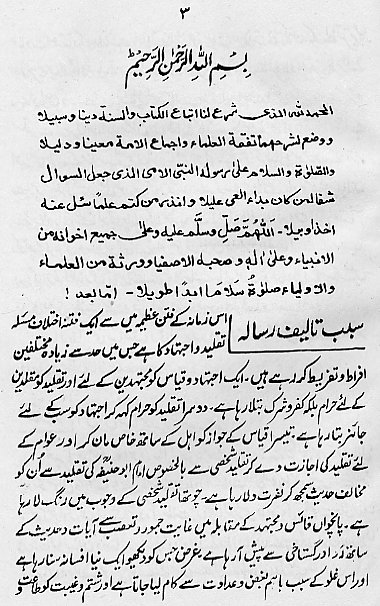 ۳
بِسْمِ اللهِ الرَّحْمٰنِ الرَّحِیْمِ
الحمد للہ الذی شرع لنا اتباع الکتاب والسنة دینا وسبیلا
ووضع لشرحھما تفقة العلماء واجماع الامة معینا ودلیلا
والصلوٰۃ والسلام علیٰ رسولہ النبی الامی الذی جعل السوال
شفا لمن کان بداء العی علیلا وانذر من کتم علما سئل عنہ
اخذا وبیلا۔ اللّٰھُمَّ صَلِّ وسلّم علیہ وعلیٰ جمیع اخوانہ من
الانبیاء وعلیٰ اٰلہٖ وصحبہ الاصفیاء وورثة من العلماء
والاولیاء صلوٰۃً سلامًا ابدًا طویلا۔ امّا بعد!
سبب تالیف رسالہ
اس زمانہ کے فتن عظیمہ میں سے ایک فتنہ اختلاف مسئلہ
تقلید و اجتہاد کا ہے جس میں حد سے زیادہ مختلفین
افراط و تفریط کر رہے ہیں۔ ایک اجتہاد و قیاس کو مجتہدین کے لئے اور تقلید کو مقلدین
کے لئے حرام بلکہ کفر و شرک بتلا رہا ہے۔ دوسرا تقلید کو حرام کہہ کر اجتہاد کو سب کے لئے
جائز بتا رہا ہے۔ تیسرا قیاس کے جواز کو اہل کے ساتھ خاص مان کر اور عوام کے
لئے تقلید کی اجازت دے کر تقلید شخصی سے بالخصوص امام ابو حنیفہؒ کی تقلید سے اُن کو
مخالف حدیث سمجھ کر نفرت دلا رہا ہے۔ چوتھا تقلید شخصی کے وجوب میں رنگ لا رہا
ہے۔ پانچواں قائس و مجتہد کے مقابلہ میں غایت جمود و تعصب سے آیات و حدیث کے
ساتھ رد اور گستاخی سے پیش آ رہا ہے۔ غرض جس کو دیکھو ایک نیا افسانہ سنا رہا ہے
اور اس غلو کے سبب باہم بغض و عداوت سے کام لیا جاتا ہے اور شتم و غیبت کو طاعت و